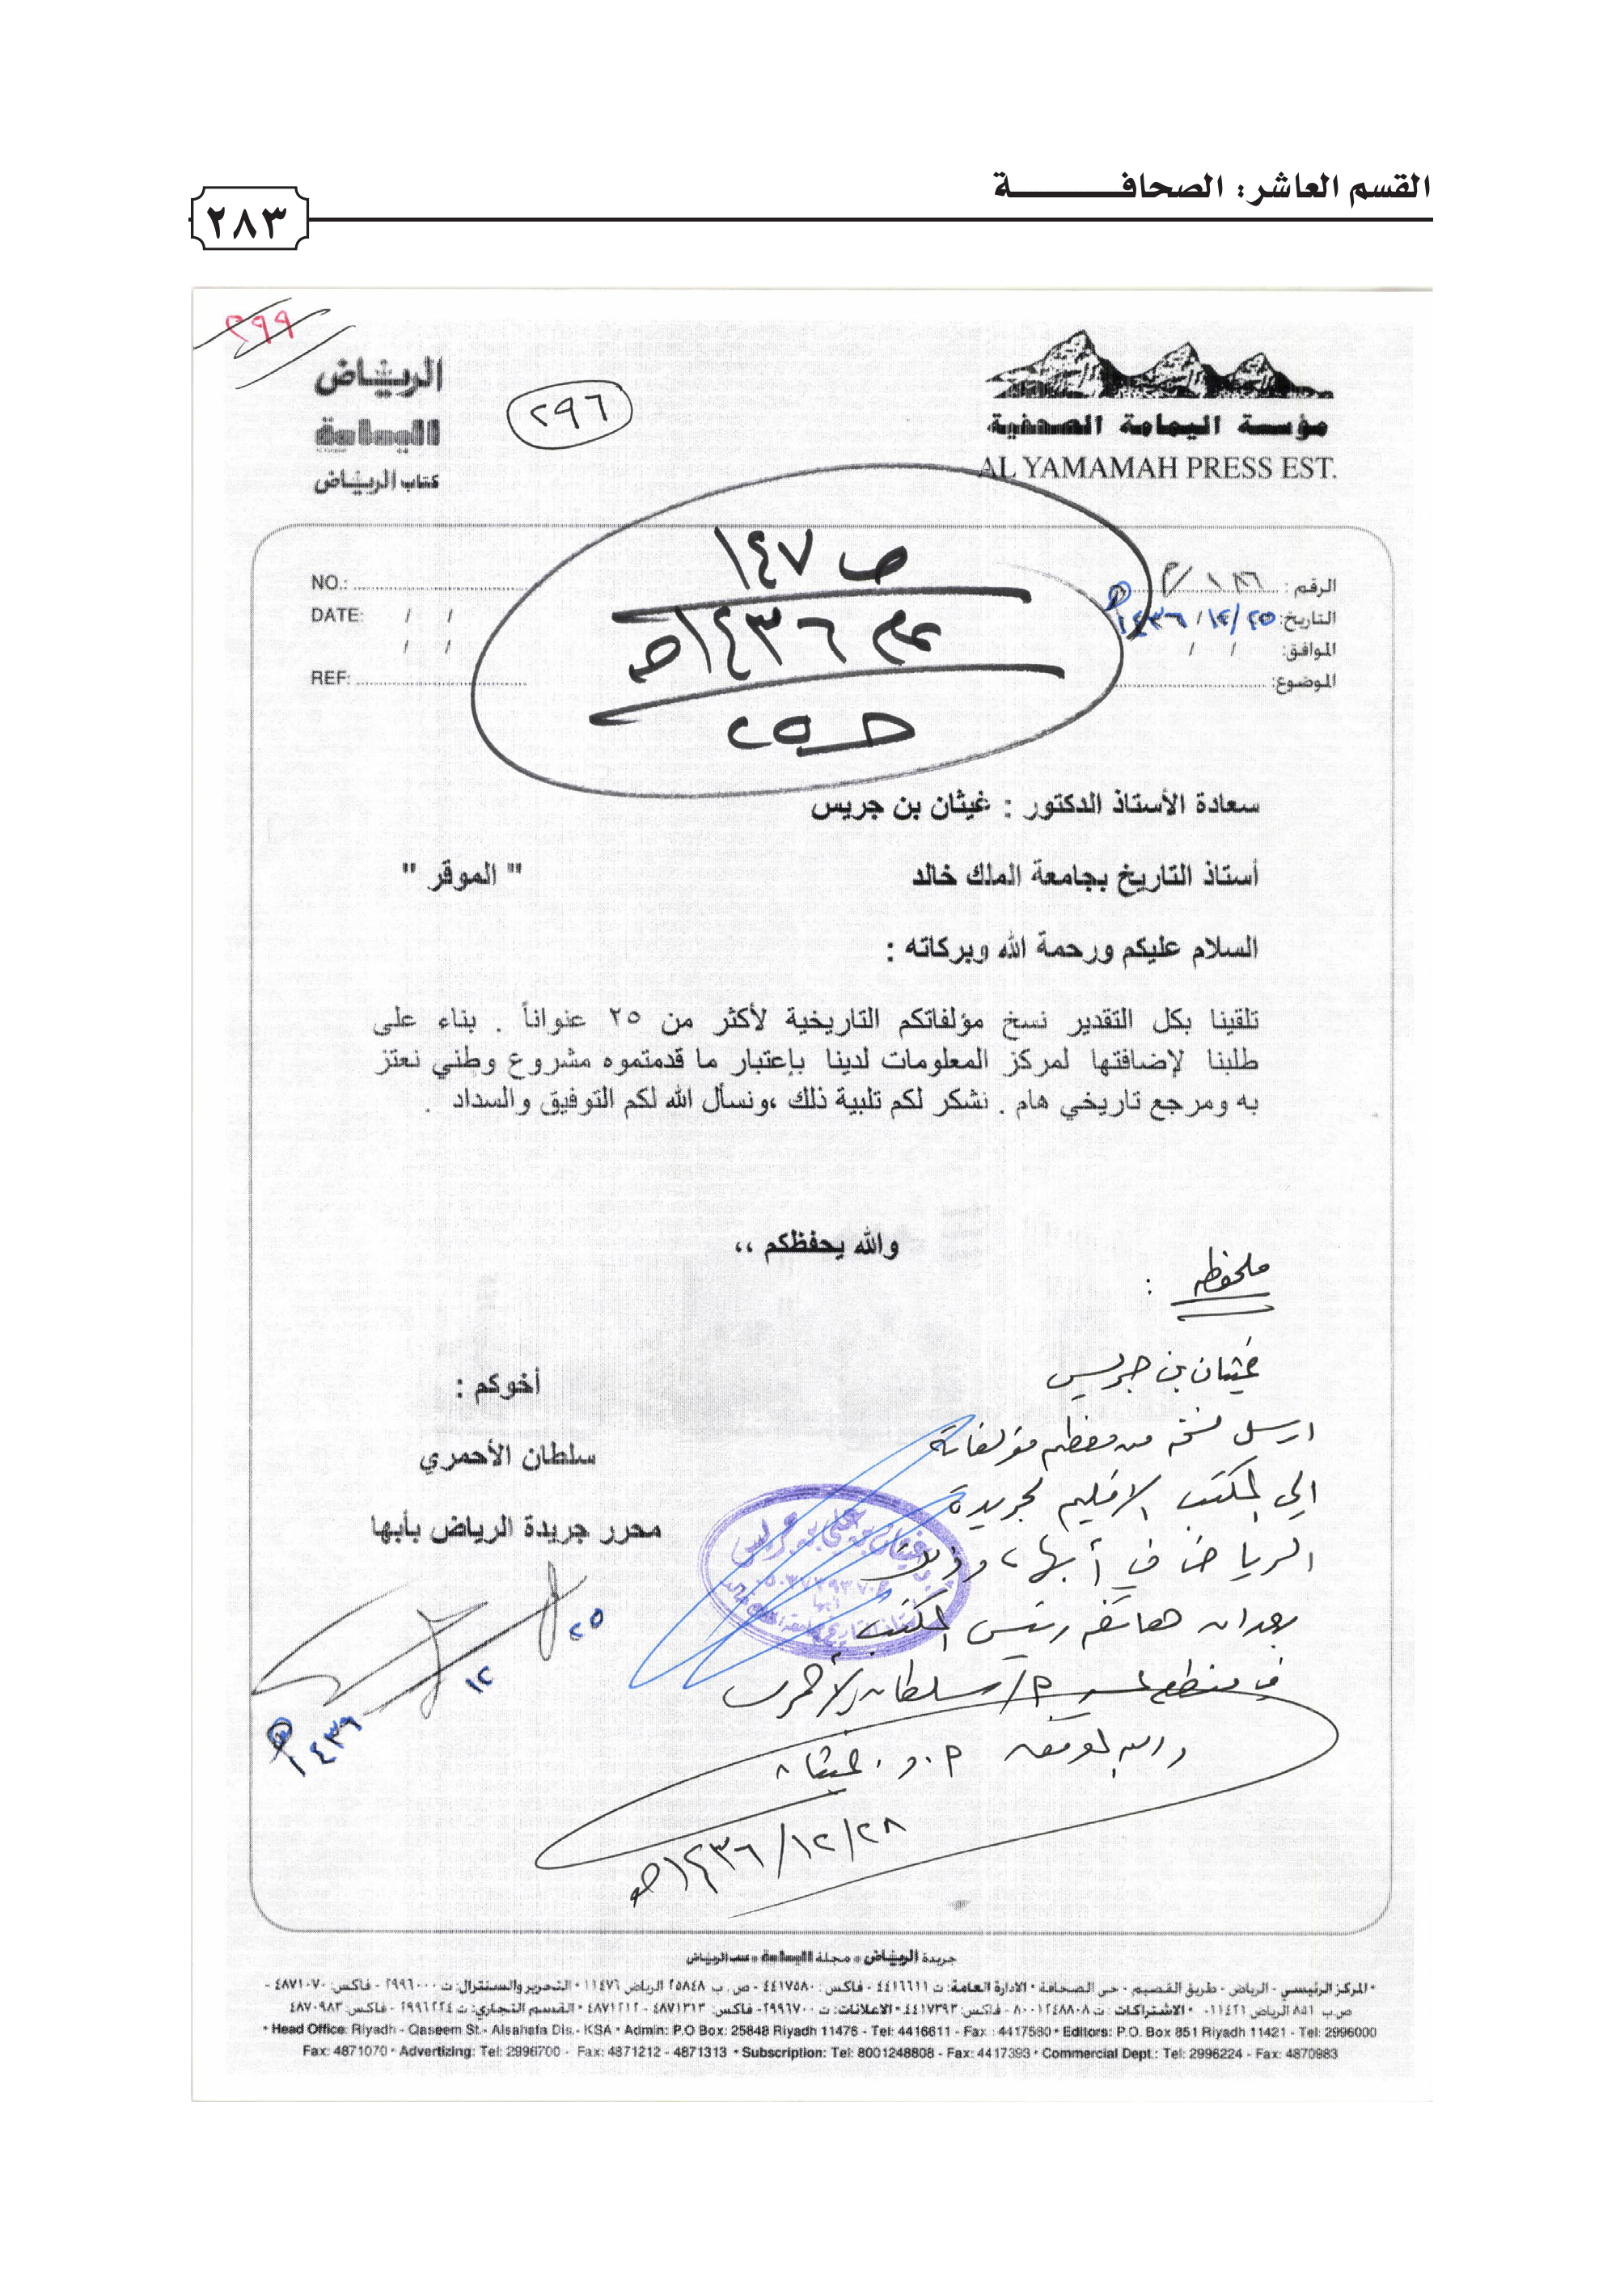 القسم العاشر: الصحافــــــــــة
٢٨٣
٢٩٩
الرياض
اليمامة
كتاب الرياض
٢٩٦
مؤسسة اليمامة الصحفية
AL YAMAMAH PRESS EST.
ص ١٤٧
عام ١٤٣٦هـ
حـ ٢٥
NO.:
DATE: / /
/ /
REF:
الرقم : ١٨٦/م
التاريخ: ٢٥/ ١٢/ ١٤٣٦هـ
الموافق: / /
الموضوع:
سعادة الأستاذ الدكتور : غيثان بن جريس
أستاذ التاريخ بجامعة الملك خالد " الموقر "
السلام عليكم ورحمة الله وبركاته :
تلقينا بكل التقدير نسخ مؤلفاتكم التاريخية لأكثر من ٢٥ عنواناً . بناء على
طلبنا لإضافتها لمركز المعلومات لدينا بإعتبار ما قدمتموه مشروع وطني نعتز
به ومرجع تاريخي هام . نشكر لكم تلبية ذلك ،ونسأل الله لكم التوفيق والسداد .
والله يحفظكم ،،
أخوكم :
سلطان الأحمري
محرر جريدة الرياض بأبها
٢٥
١٢
١٤٣٦هـ
ملحوظه :
غيثان بن جريس
ارسل نسخه من معظم مؤلفاته
الي المكتب الاقليم لجريدة
الرياض في أبها، وذلك
بعد ان هاتفه رئيس المكتب
في منطقة عسير م/ سلطان الأحمري
والله الموفق أ.د. غيثان
٢٨/١٢/١٤٣٦هـ
جريدة الرياض • مجلة اليمامة • كتاب الرياض
• المركز الرئيسي - الرياض - طريق القصيم - حي الصحافة • الادارة العامة: ت ٤٤١٦٦١١ - فاكس : ٤٤١٧٥٨٠ - ص. ب ٢٥٨٤٨ الرياض ١١٤٧٦ • التحرير والسنترال: ت ٢٩٩٦٠٠٠ - فاكس: ٤٨٧١٠٧٠ -
ص.ب ٨٥١ الرياض ١١٤٢١ • الاشتراكات : ت ٨٠٠١٢٤٨٨٠٨ - فاكس: ٤٤١٧٣٩٣ • الاعلانات: ت ٢٩٩٦٧٠٠ - فاكس: ٤٨٧١٣١٣ - ٤٨٧١٢١٢ • القسم التجاري: ت ٢٩٩٦٢٢٤ - فاكس: ٤٨٧٠٩٨٣
• Head Office: Riyadh - Qaseem St.- Alsahafa Dis.- KSA • Admin: P.O Box: 25848 Riyadh 11476 - Tel: 4416611 - Fax : 4417580 • Editors: P.O. Box 851 Riyadh 11421 - Tel: 2996000
Fax: 4871070 • Advertizing: Tel: 2996700 - Fax: 4871212 - 4871313 • Subscription: Tel: 8001248808 - Fax: 4417393 • Commercial Dept.: Tel: 2996224 - Fax: 4870983